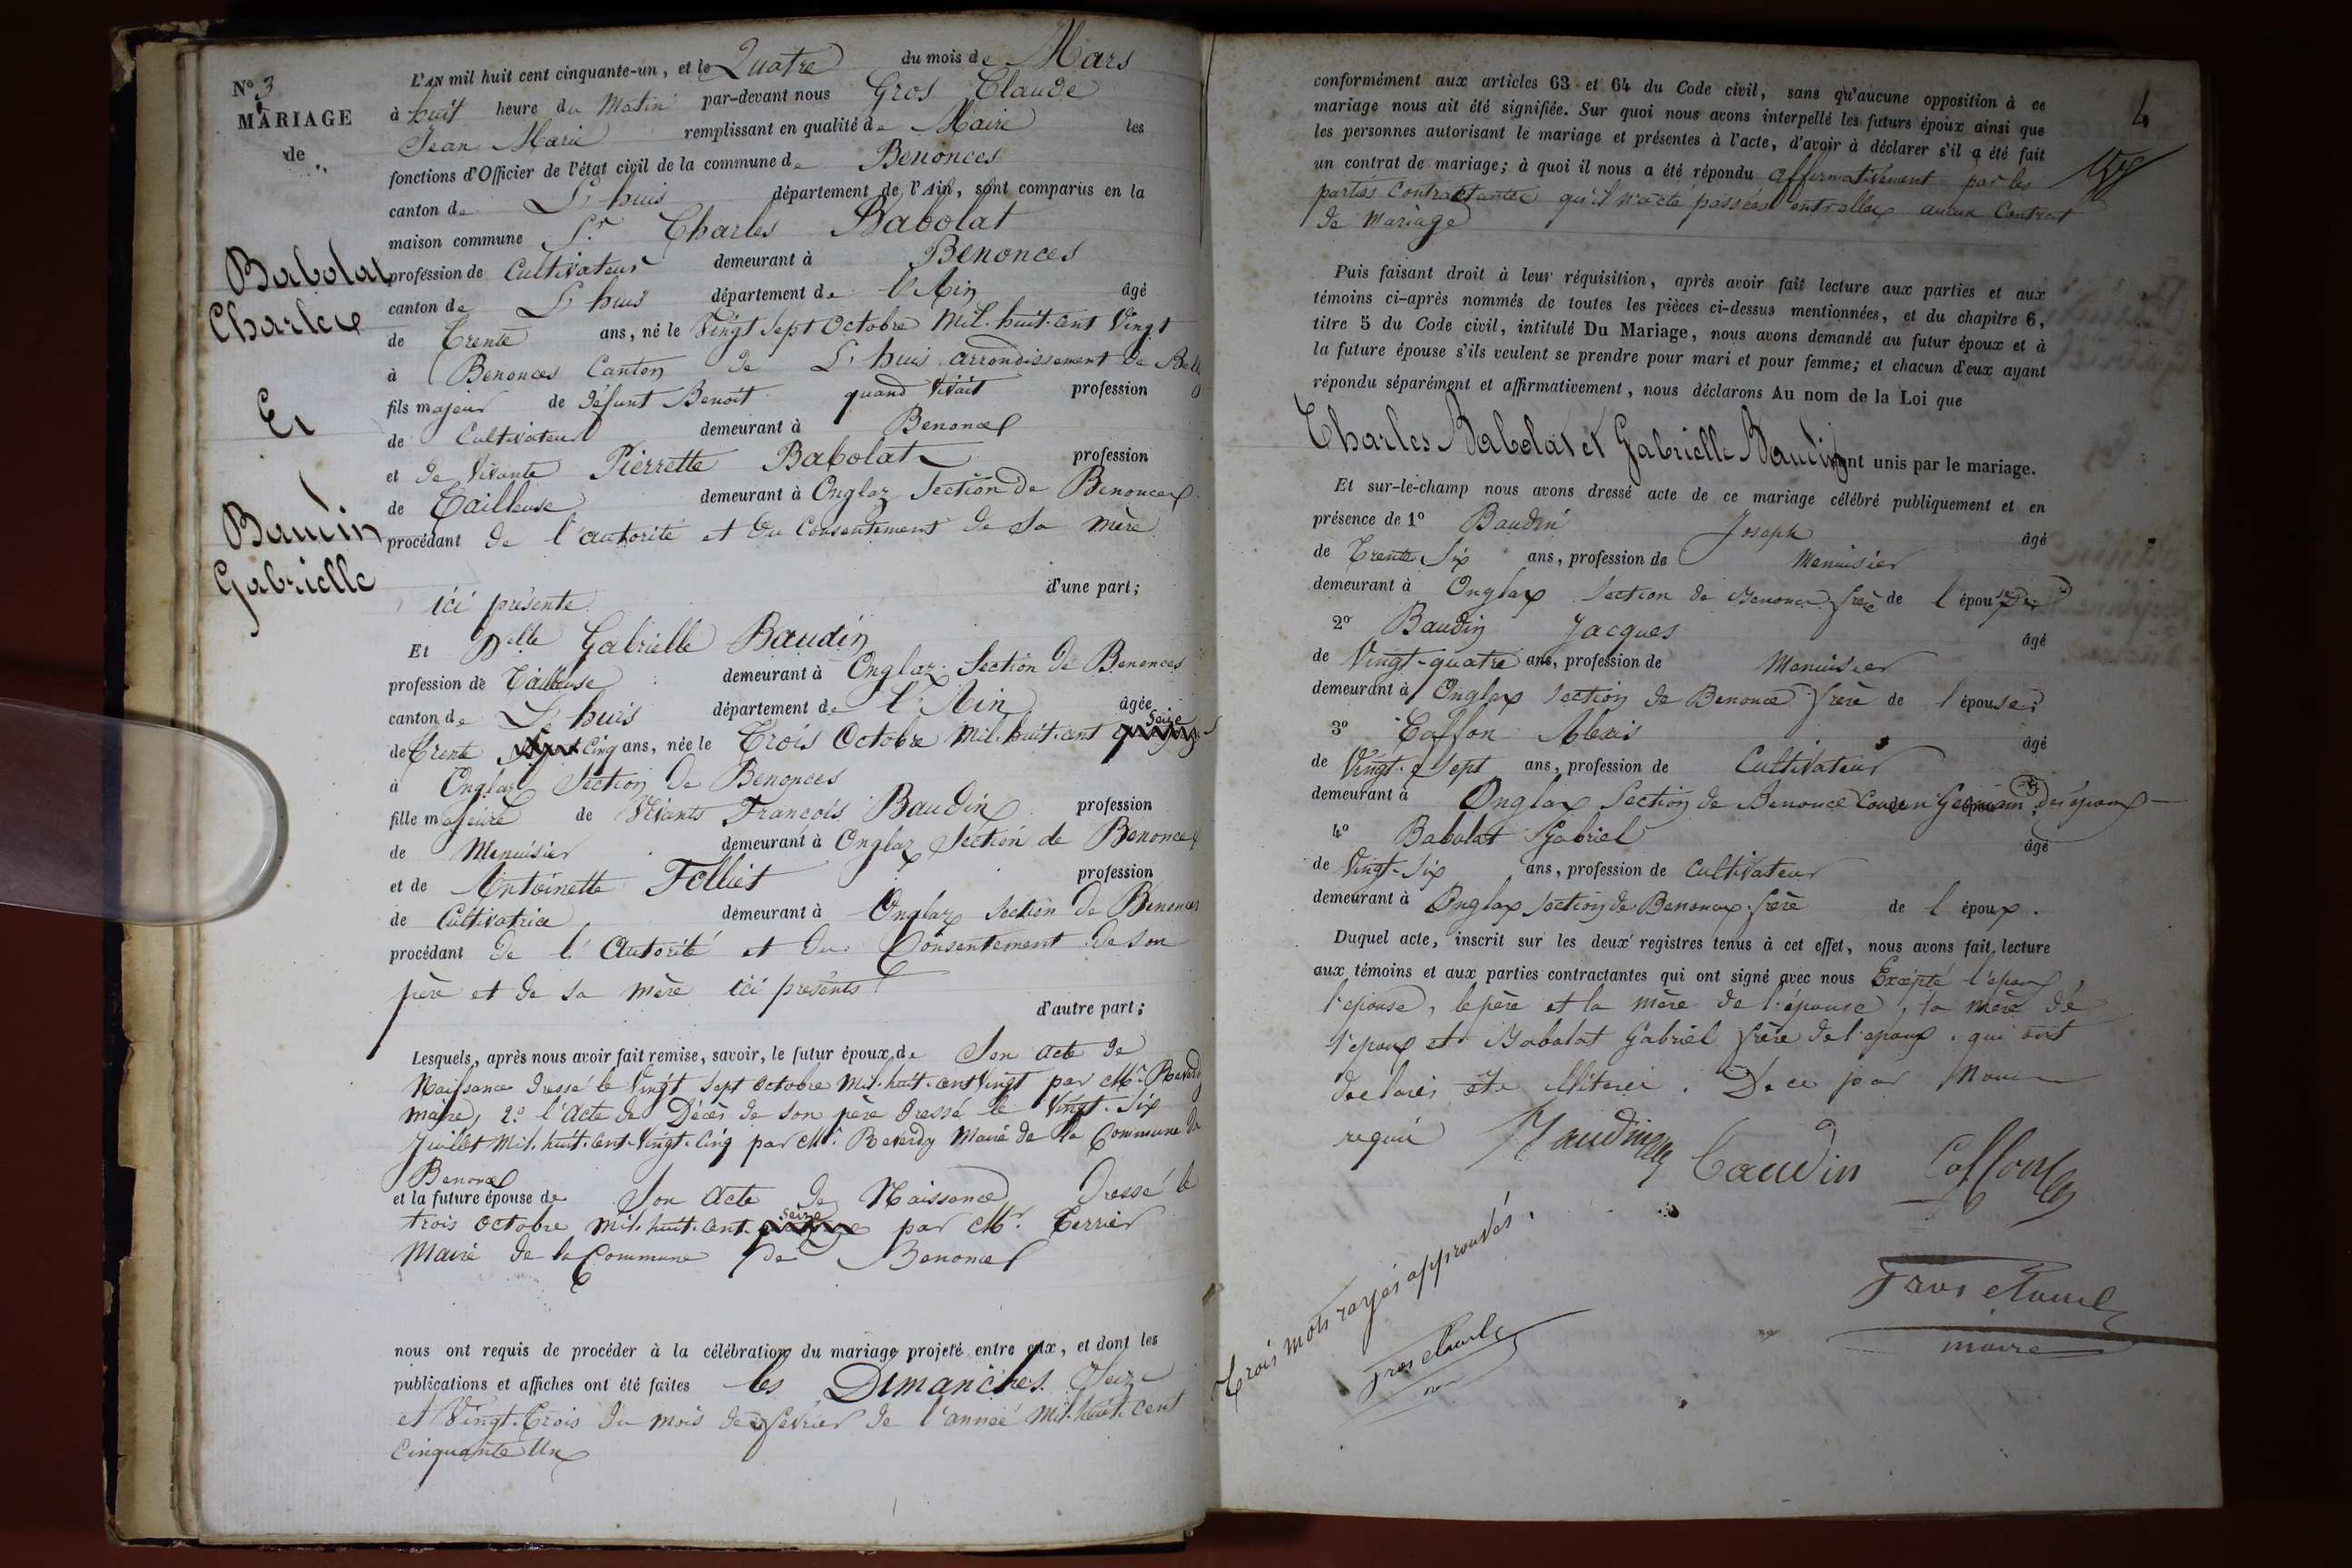 N° 3
MARIAGE
de
Babolat
Charles
Et
Baudin
Gabrielle
L'AN mil huit cent cinquante-un, et le Quatre du mois de Mars
à huit heure du Matin par-devant nous Gros Claude
Jean Marie remplissant en qualité de Maire les
fonctions d'Officier de l'état civil de la commune de Benonces
canton de L'huis département de l'Ain, sont comparus en la
maison commune Sr Charles Babolat
profession de Cultivateur demeurant à Benonces
canton de L'huis département de l'Ain âgé
de Trente ans, né le Vingt sept Octobre Mil.huit.cent Vingt
à Benonces Canton de L'huis arrondissement de Belle
fils majeur de défunt Benoit quand Vivait profession
de Cultivateur demeurant à Benonces
et de Vivante Pierrette Babolat profession
de Tailleuse demeurant à Onglaz Section de Benonces
procédant de l'autorité et du Consentement de Sa mère
ici présente d'une part;
Et Delle Gabrielle Baudin
profession de Tailleuse demeurant à Onglaz Section de Benonces
canton de L'huis département de l'Ain âgée
de Trente Cinq ans, née le Trois Octobre Mil.huit.cent seize
à Onglaz Section de Benonces
fille majeure de Vivants François Baudin profession
de Menuisier demeurant à Onglaz Section de Benonces
et de Antoinette Folliet profession
de Cultivatrice demeurant à Onglaz Section de Benonces
procédant de l'Autorité et du Consentement de son
père et de sa mère ici présents
d'autre part;
Lesquels, après nous avoir fait remise, savoir, le futur époux, de Son acte de
Naissance dressé le Vingt sept octobre Mil.huit.cent Vingt par Mr. Reverdy
maire, 2° l'Acte de Décès de Son père dressé le Vingt.Six
Juillet Mil.huit.Cent.Vingt.Cinq par Mr. Reverdy Maire de la Commune de
Benonces
et la future épouse de Son Acte de Naissance dressé le
trois octobre mil.huit.Cent. seize par Mr. Terrier
Maire de la Commune de Benonces
nous ont requis de procéder à la célébration du mariage projeté entre eux, et dont les
publications et affiches ont été faites les Dimanches Seize
et Vingt.Trois du mois de février de l'année Mil.huit.cent
Cinquante Un
4
conformément aux articles 63 et 64 du Code civil, sans qu'aucune opposition à ce
mariage nous ait été signifiée. Sur quoi nous avons interpellé les futurs époux ainsi que
les personnes autorisant le mariage et présentes à l'acte, d'avoir à déclarer s'il a été fait
un contrat de mariage; à quoi il nous a été répondu affirmativement par les
parties Contractantes qu'il n'a été passées entrelles aucun Contrat
de Mariage
Puis faisant droit à leur réquisition, après avoir fait lecture aux parties et aux
témoins ci-après nommés de toutes les pièces ci-dessus mentionnées, et du chapitre 6,
titre 5 du Code civil, intitulé Du Mariage, nous avons demandé au futur époux et à
la future épouse s'ils veulent se prendre pour mari et pour femme; et chacun d'eux ayant
répondu séparément et affirmativement, nous déclarons Au nom de la Loi que
Charles Babolat et Gabrielle Baudin sont unis par le mariage.
Et sur-le-champ nous avons dressé acte de ce mariage célébré publiquement et en
présence de 1° Baudin Joseph âgé
de Trente Six ans, profession de Menuisier
demeurant à Onglax Section de Benonces frère de l'épouse
2° Baudin Jacques âgé
de Vingt-quatre ans, profession de Menuisier
demeurant à Onglax Section de Benonces frère de l'épouse
3° Caffon Alexis âgé
de Vingt.Sept ans, profession de Cultivateur
demeurant à Onglax Section de Benonce Cousin Germain des époux
4° Babolat Gabriel âgé
de Vingt-Six ans, profession de Cultivateur
demeurant à Onglax Section de Benonces frère de l époux.
Duquel acte, inscrit sur les deux registres tenus à cet effet, nous avons fait lecture
aux témoins et aux parties contractantes qui ont signé avec nous Excepté l'époux
l'épouse, le père et la mère de l'épouse, la mère de
l'époux et Babolat Gabriel frère de l'époux. qui ont
declarés être illiteréi. De ce par Nous
requi Baudin Baudin Caffon
Trois mots rayés approuvés.
Gros Claude
Gros Claude
maire